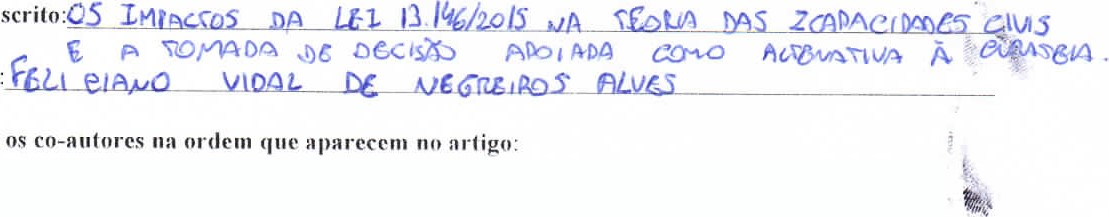 scrito: OS IMPACTOS DA LEI 13.146/2015 NA TEORIA DAS ICAPACIDADES CIVIS
E A TOMADA DE DECISÃO APOIADA COMO ALTERNATIVA À CURATELA.
: FELICIANO VIDAL DE NEGREIROS ALVES
os co-autores na ordem que aparecem no artigo: